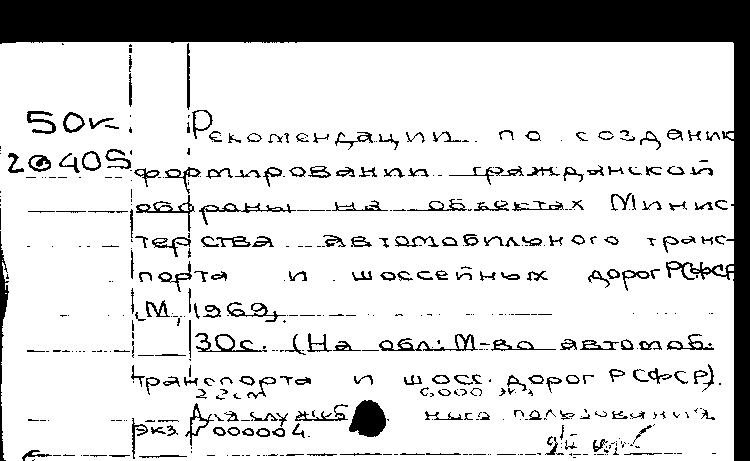 50к Рекомендации по созданию
2 0405 формировании гражданской
обороны на объектах Минис-
терства автомобильного транс-
порта и шоссейных дорог РСФСР
М, 1969,
30с. (На обл: М-во автомоб.
транспорта и шосс. дорог РСФСР).
22см 6000 экз
Для служебного пользования.
экз N 000004.